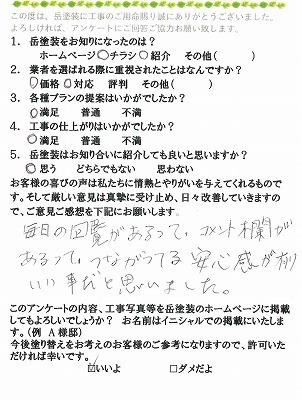 この度は、岳塗装に工事のご用命賜り誠にありがとうございました。
よろしければ、アンケートにご回答ご協力お願い致します。
1．岳塗装をお知りになったのは？
ホームページ　チラシ　紹介　その他（　　）
2．業者を選ばれる際に重視されたことはなんですか？
価格　対応　評判　その他（　　）
3．各種プランの提案はいかがでしたか？
満足　普通　不満
4．工事の仕上がりはいかがでしたか？
満足　普通　不満
5．岳塗装はお知り合いに紹介しても良いと思いますか？
思う　どちらでもない　思わない
お客様の喜びの声は私たちに情熱とやりがいを与えてくれるものです。
そして厳しい意見は真摯に受け止め、日々改善していきますので、
ご意見ご感想を下記にお願いします。
毎日の回覧があるって、コメント欄が
あるって、つながってる安心感が有り
いい事だと思いました。
このアンケートの内容、工事写真等を岳塗装のホームページに掲載
してもよろしいでしょうか？　お名前はイニシャルでの掲載にいたしま
す。（例　A 様邸）
今後塗り替えをお考えのお客様のご参考になりますので、許可いた
だければ幸いです。
☑いいよ　□ダメだよ